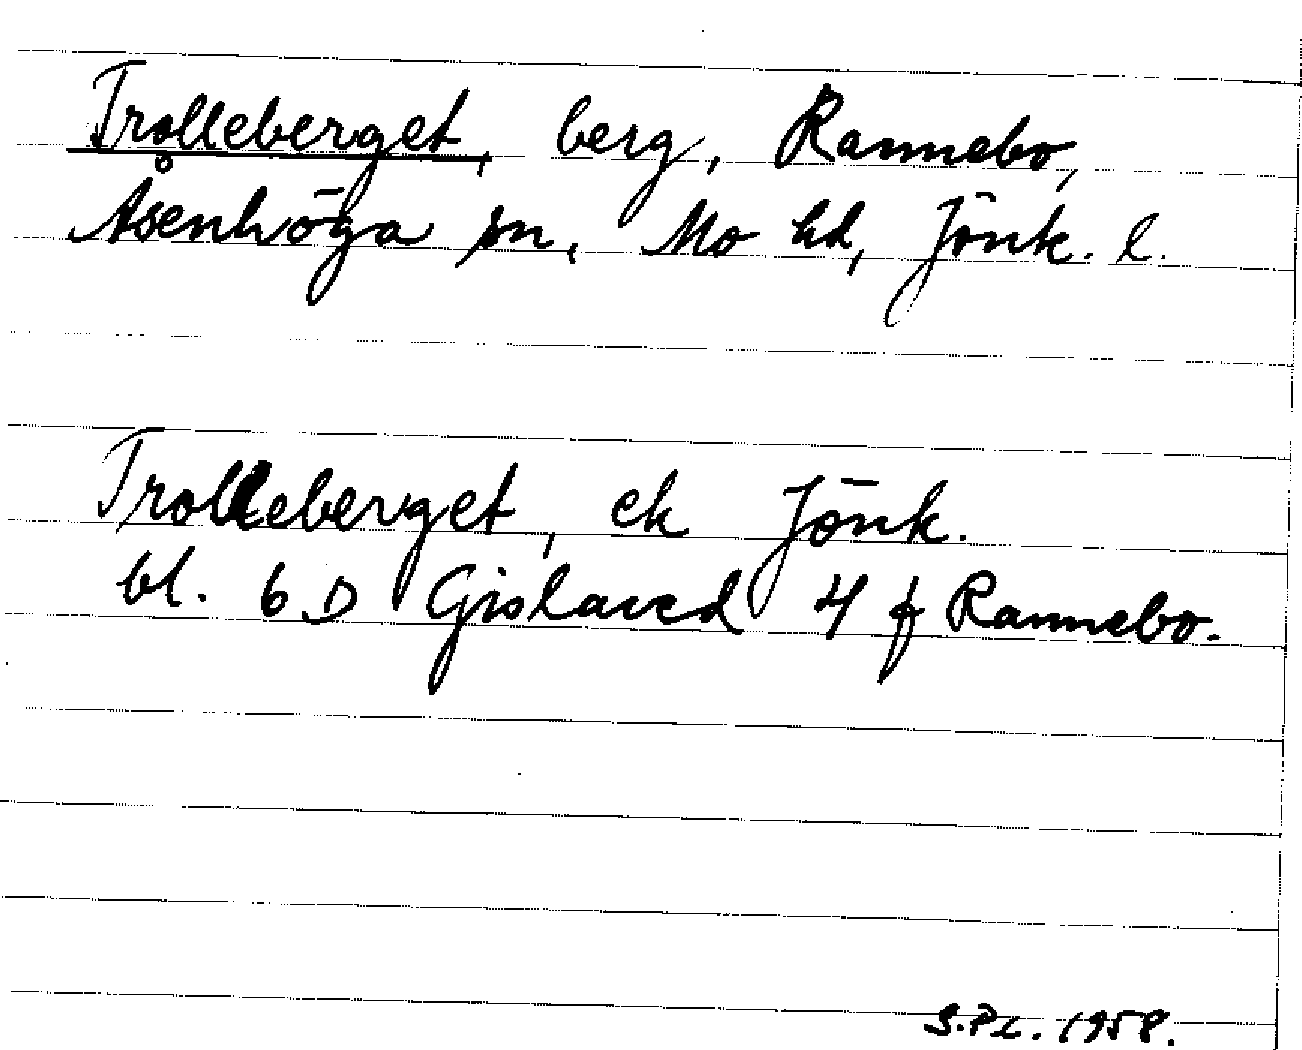 Trolleberget, berg, Rannebo,
Åsenhöga sn, Mo hd, Jönk. l.
Trolleberget, ek Jönk.
bl. 6 D Gislaved 4 f Rannebo.
S.PL. 1958.